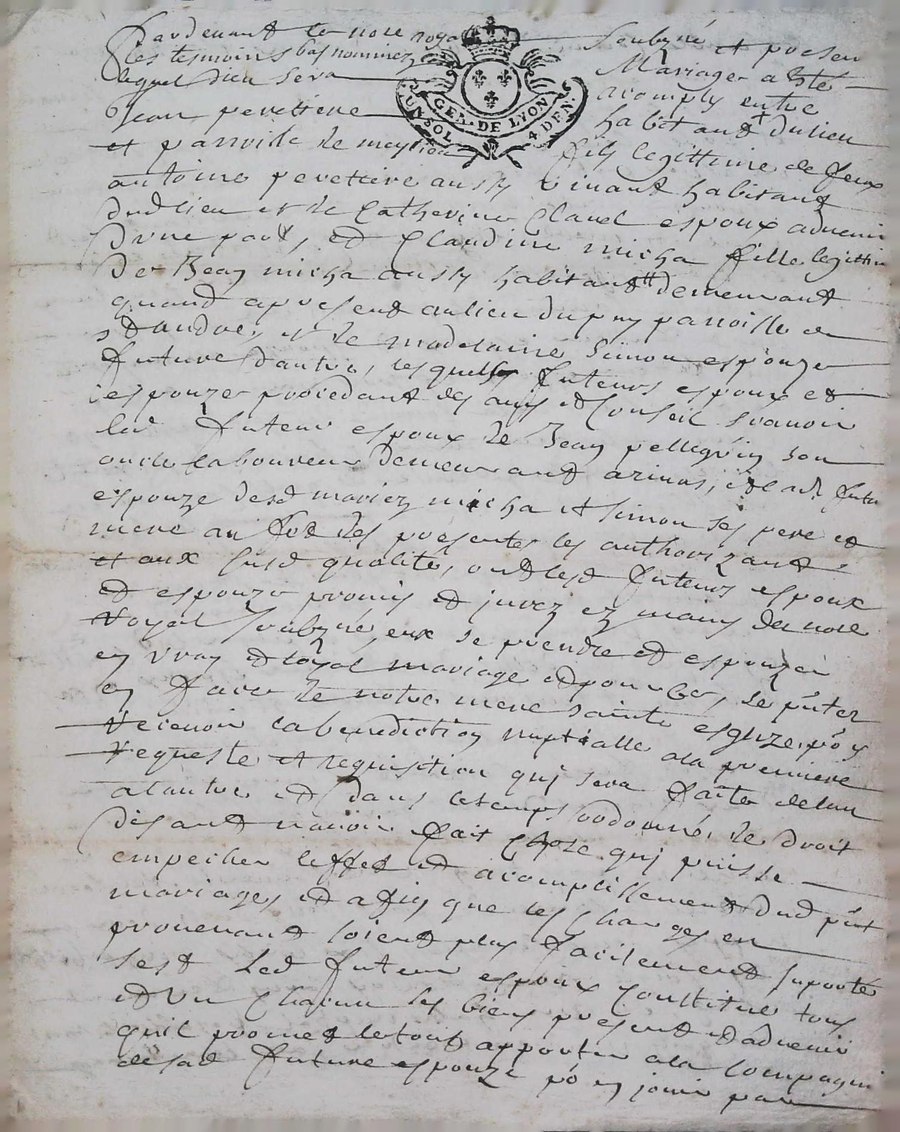 Pardevant le no.re royal soubzné et presen
les tesmoins bas nommez Mariage a esté
lequel dieu sera acomply entre
Jean perettiere habitant du lieu
et parroisse de filz legittime de feux
GEN. DE LYON
UN SOL 4 DEN
antoine perettiere aussy vivant habitant
dud lieu et de Catherine Clavel espoux advenir
d'une part, et Claudine micha fille legittim
de Jean micha aussy habitant demeurant
quand apresent au lieu du puy parroisse de
st andré, et de madelaine Simon espouze
future d'autre, lesquels futeurs espoux et
espouze procedant des avis et Conseil scavoir
led futeur espoux de Jean pellegrin son
oncle laboureur demeurant a et lad futu
espouze desd mariez micha et Simon ses pere et
mere au des presentes les authorizant
et aux susd qualité, ont lesd futeurs espoux
et espouze promis et jurez ez mains du no.re
Royal soubzné, eux se prendre et espouzer
en vray et loyal mariage et pour ce, se p.nter
en face de notre mere sainte esglize, po. y
recevoir la benediction nuptialle a la premiere
requeste et requisition qui sera faite de lun
a lautre et dans le temps ordonné, de droit
disant navoir fait Choze qui puisse
empecher leffet et acomplissement dud p.nt
mariage, et afin que les Charges en
provenant soient plus facilement suporté
sest led futeur espoux Constitué tous
et un Chacun ses biens present et advenir
quil promet le tout apporter a la Compagni
de sad future espouze po. en jouir par